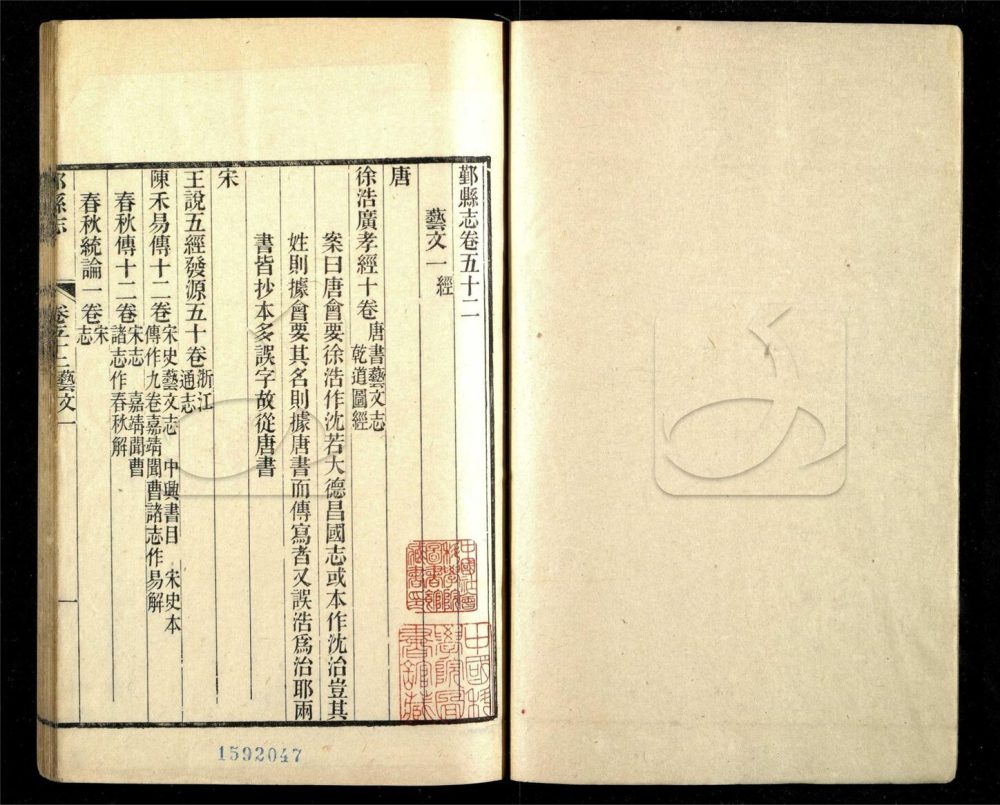 鄞縣志卷五十二
藝文一 經
唐
徐浩廣孝經十卷 唐書藝文志 乾道圖經
案曰唐會要徐浩作沈若大德昌國志或本作沈治豈其
姓則據會要其名則據唐書而傳寫者又誤浩爲治耶兩
書皆抄本多誤字故從唐書
宋
王說五經發源五十卷 浙江通志
陳禾易傳十二卷 宋史藝文志 中興書目 宋史本傳作九卷嘉靖聞曹諸志作易解
春秋傳十二卷 宋志 嘉靖聞曹諸志作春秋解
春秋統論一卷 宋志
縣志 卷五十二 藝文一 一
中國科學院圖書館藏
1592047